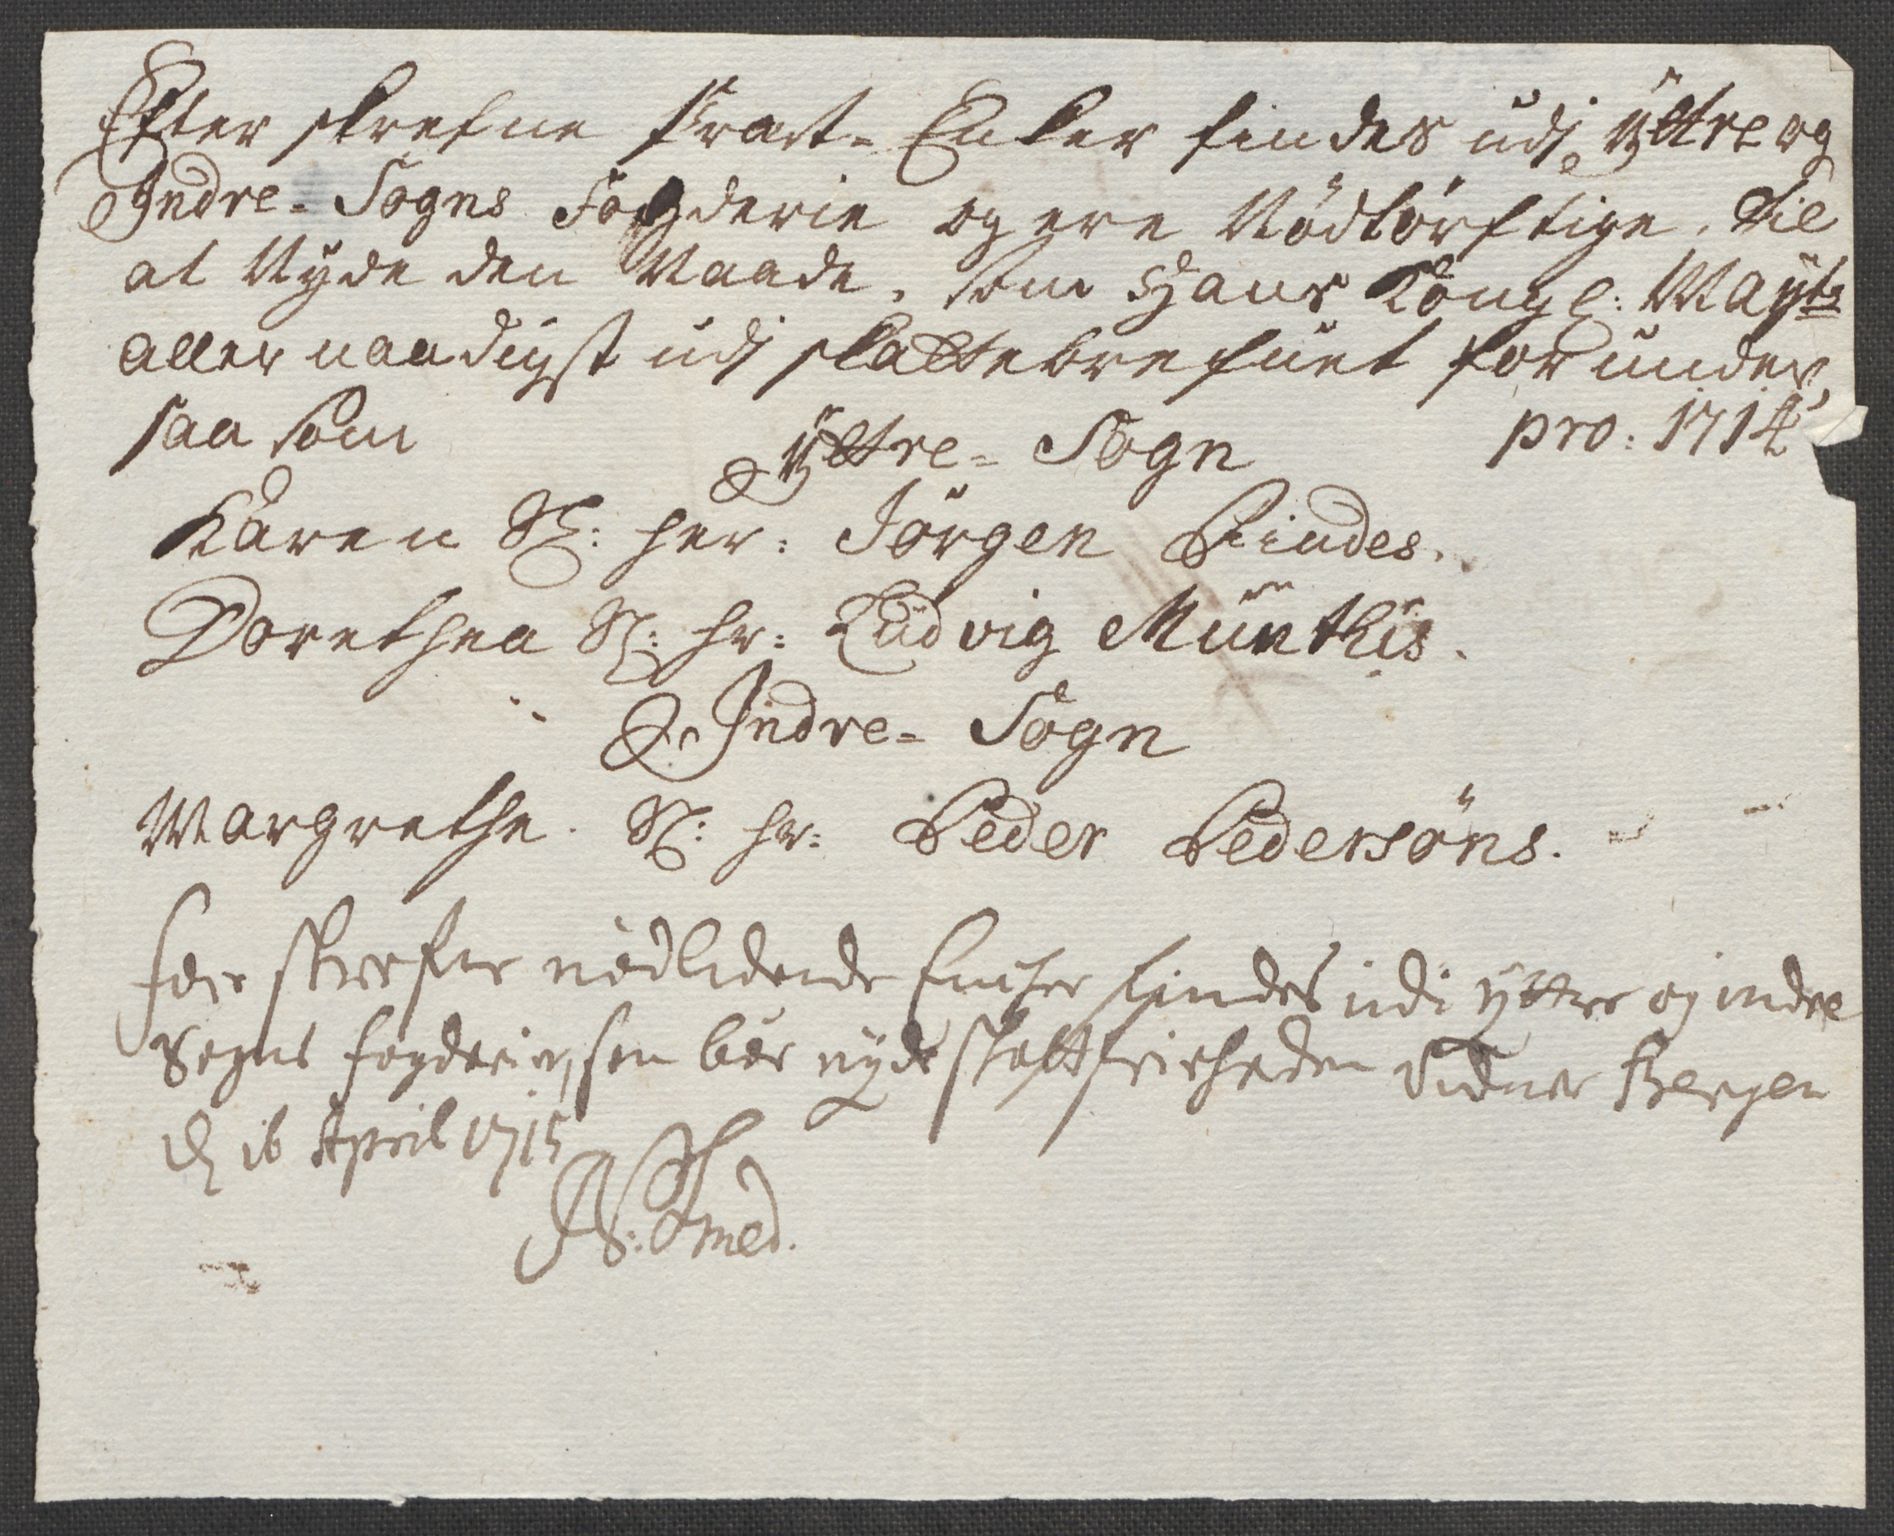 Efter skrefne Præste Enker findes udj Yttre og
Indre-Sogns Fogderie og ere Nödtörftige, til
at Nyde den Naade, som Hans Kongl: Mayts
aller naadigst udj skattebrefuet forunder,
saa som pro: 1714
Yttre-Sogn
Karen Sl: her: Jörgen Bindes.
Dorethea Sl: hr: Ludvig Munthis.
Indre-Sogn
Margrethe. Sl: hr: Peder Pedersöns.
For skrefne nödlidende Encher findes udi Yttre og indre
Sogns fogderie, som bör nyde skattfriheden vidner Bergen
d 16 April 1715
Smed.